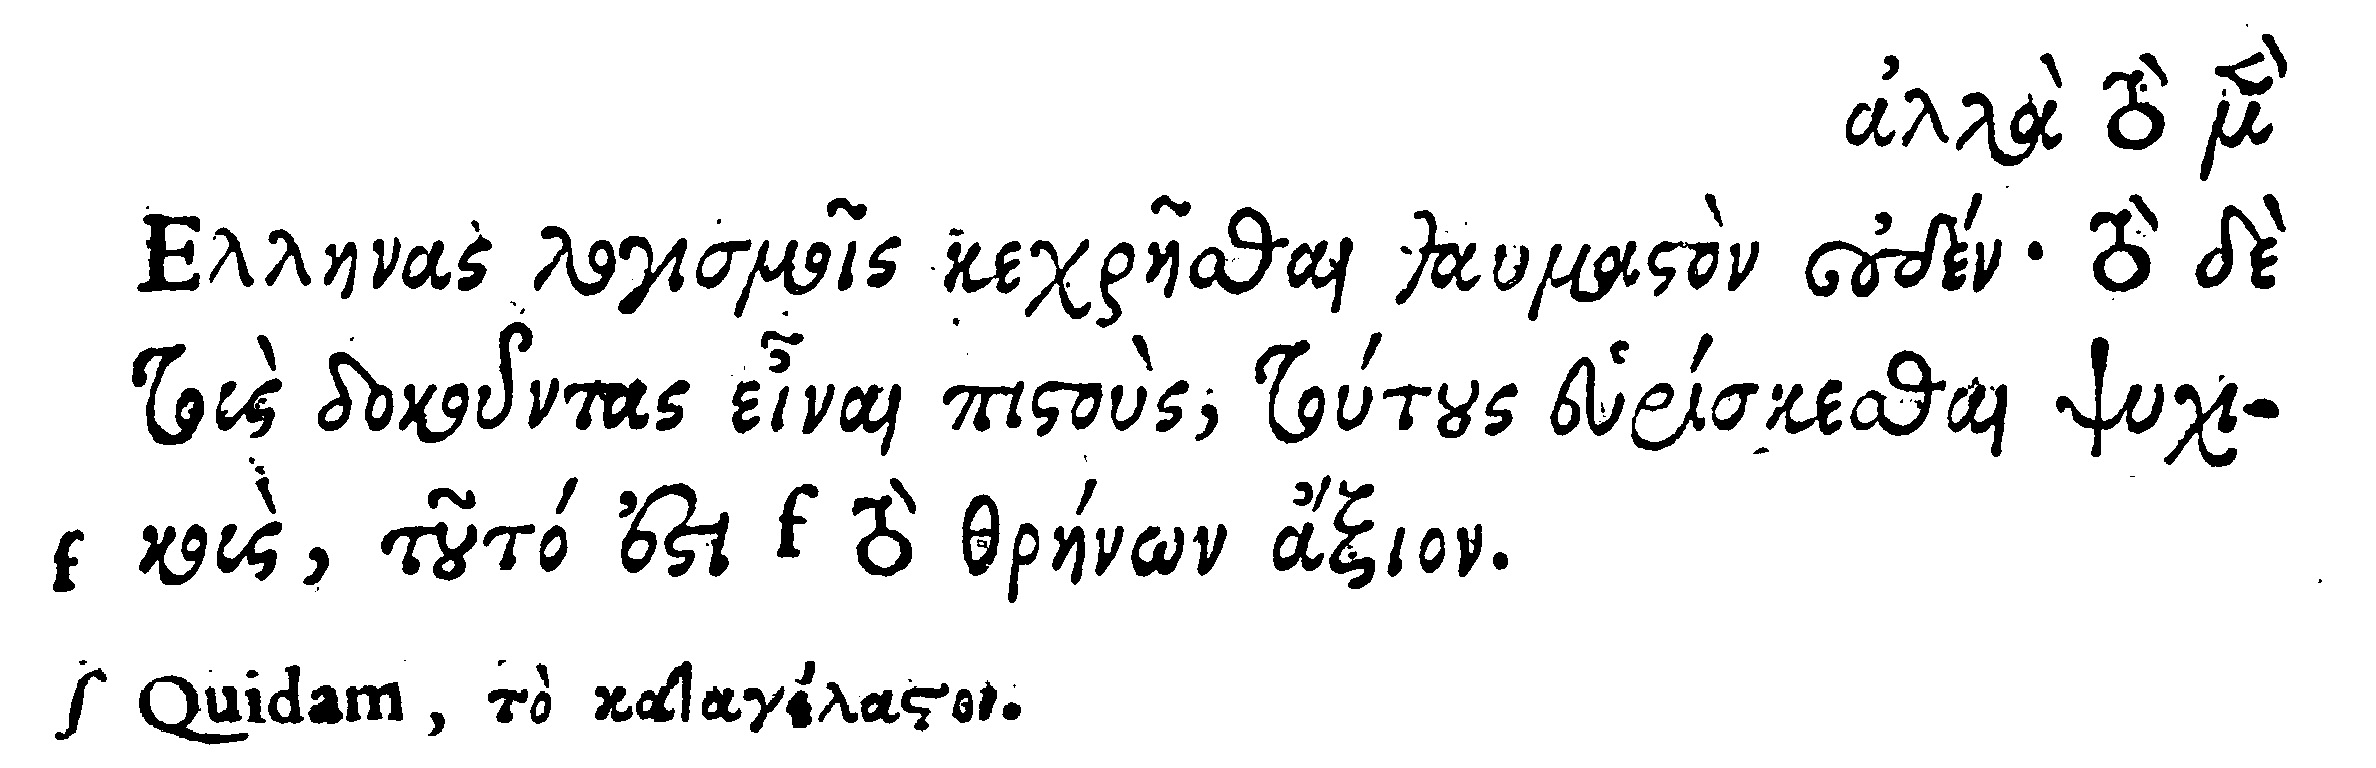 ἀλλὰ τὸ μὲν
Ελληνας λογισμοῖς κεχρῆσθαι θαυμαστὸν οὐδέν· τὸ δὲ
τοὺς δοκοῦντας εἶναι πιστοὺς, τούτους εὑρίσκεσθαι ψυχι-
f κοὺς, τοῦτό ἐστι f τὸ θρήνων ἄξιον.
f Quidam, τὸ καταγέλαστον.